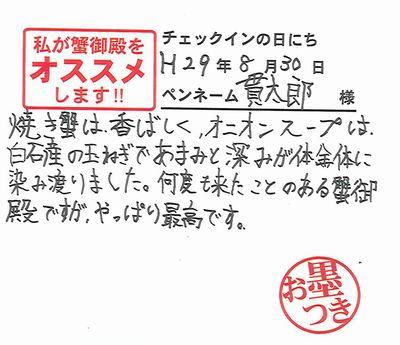 私が蟹御殿を
オススメ
します!!
チェックインの日にち
H29年8月30日
ペンネーム 貫太郎 様
焼き蟹は、香ばしく、オニオンスープは、
白石産の玉ねぎであまみと深みが体全体に
染み渡りました。何度も来たことのある蟹御
殿ですが、やっぱり最高です。
お墨つき